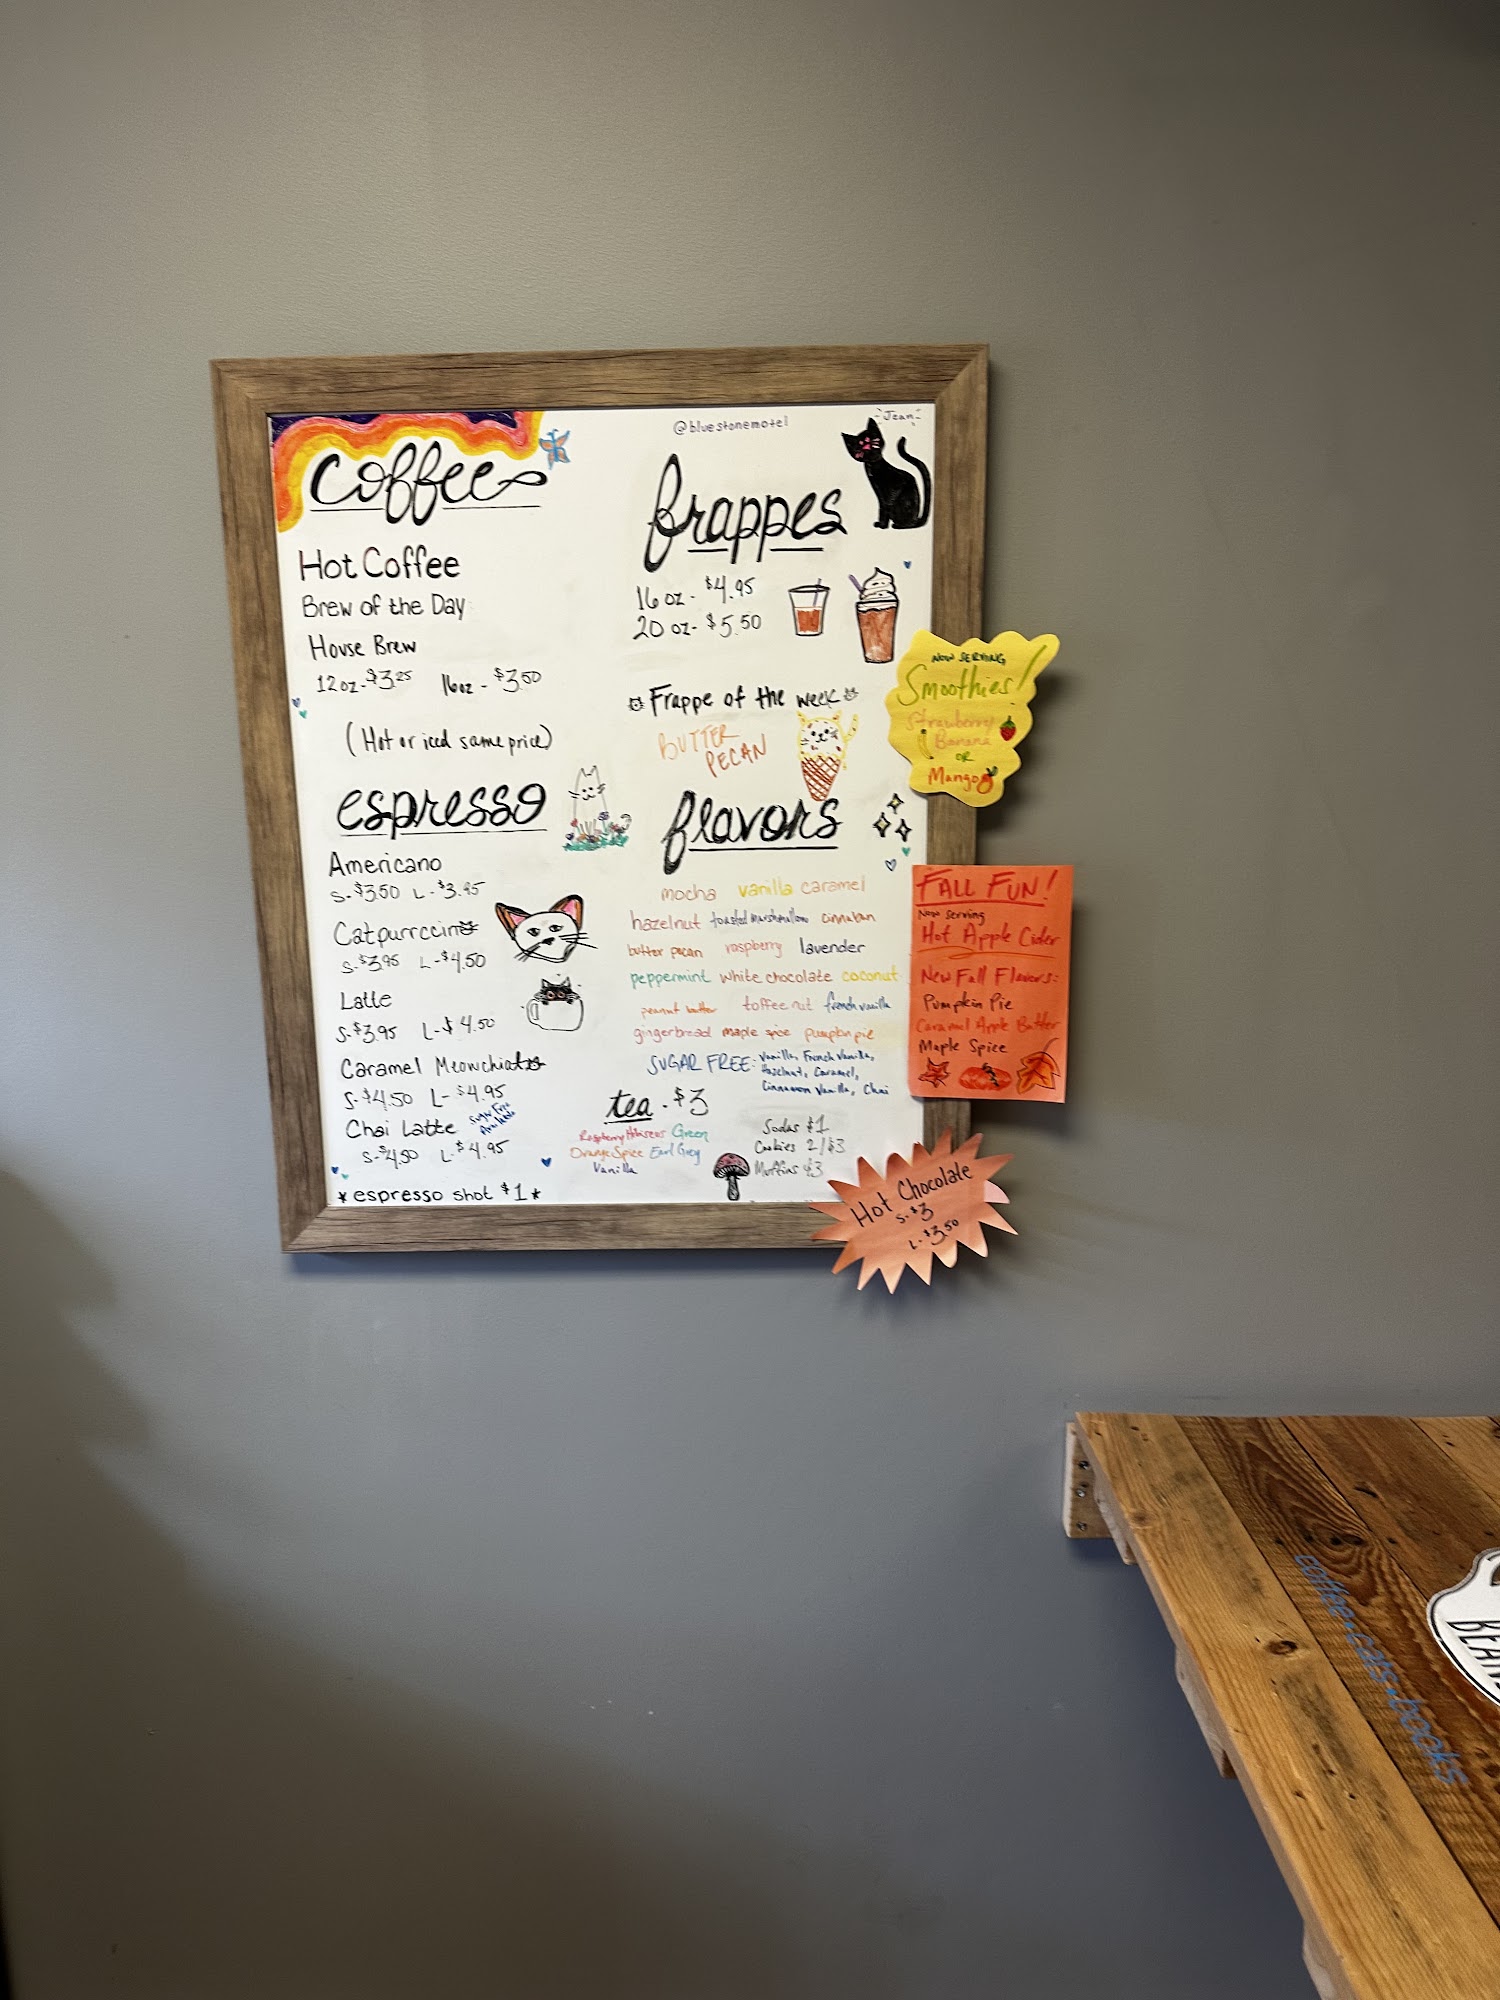 coffee
Hot Coffee
Brew of the Day
House Brew
12oz-$3.25 16oz - $3.50
(Hot or iced same price)
espresso
Americano
S-$3.50 L-$3.95
Catpurrccino
S-$3.95 L-$4.50
Latte
S-$3.95 L-$4.50
Caramel Meowchiato
S-$4.50 L-$4.95
Chai Latte Sugar Free Available
S-$4.50 L-$4.95
*espresso shot $1*
@bluestonemotel
Jean
frappes
16 oz - $4.95
20 oz- $5.50
Frappe of the week
BUTTER
PECAN
flavors
mocha vanilla caramel
hazelnut toasted marshmallow cinnabun
butter pecan raspberry lavender
peppermint white chocolate coconut
peanut butter toffee nut french vanilla
gingerbread maple spice pumpkin pie
SUGAR FREE: Vanilla, French Vanilla,
Hazelnut, Caramel,
Cinnamon Vanilla, Chai
tea - $3
Raspberry Hibiscus Green
Orange Spice Earl Grey
Vanilla
Sodas $1
Cookies 2/$3
Muffins $3
NOW SERVING
Smoothies!
Strawberry
Banana
OR
Mango
FALL FUN!
Now serving
Hot Apple Cider
New Fall Flavors:
Pumpkin Pie
Caramel Apple Butter
Maple Spice
Hot Chocolate
S-$3
L-$3.50
coffee • cats • books